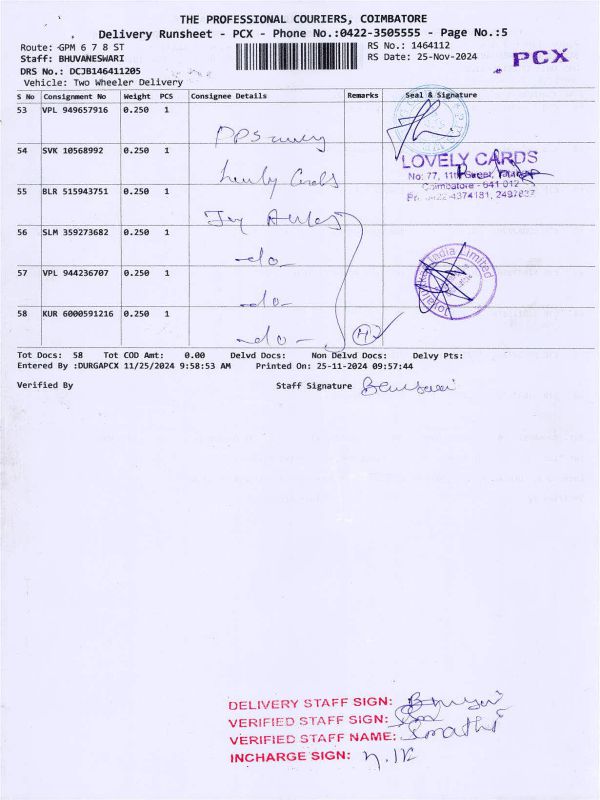 THE PROFESSIONAL COURIERS, COIMBATORE
Delivery Runsheet - PCX - Phone No.:0422-3505555 - Page No.:5
Route: GPM 6 7 8 ST
RS No.: 1464112
Staff: BHUVANESWARI
RS Date: 25-Nov-2024
PCX
DRS No.: DCJB146411205
Vehicle: Two Wheeler Delivery
S No Consignment No Weight PCS Consignee Details Remarks Seal & Signature
53 VPL 949657916 0.250 1
54 SVK 10568992 0.250 1
LOVELY CARDS
No: 77, 11th Street,
Coimbatore - 641 012
Ph: 0422-4374181, 2497837
55 BLR 515943751 0.250 1
56 SLM 359273682 0.250 1
-do-
57 VPL 944236707 0.250 1
-do-
58 KUR 6000591216 0.250 1
-do-
India Limited
Tot Docs: 58 Tot COD Amt: 0.00 Delvd Docs: Non Delvd Docs: Delvy Pts:
Entered By :DURGAPCX 11/25/2024 9:58:53 AM Printed On: 25-11-2024 09:57:44
Verified By Staff Signature
DELIVERY STAFF SIGN:
VERIFIED STAFF SIGN:
VERIFIED STAFF NAME:
INCHARGE SIGN: